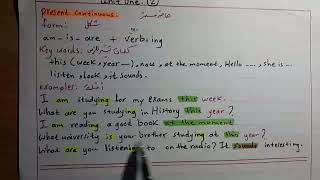 Unit one. (2)
Present Continuous:
form:
am _ is _ are + verb+ing
Key words:
this (week, year...), now, at the moment, Hello ..., she is...
listen, look, it sounds.
examples:
I am studying for my exams this week.
What are you studying in History this year?
I am reading a good book at the moment
What university is your brother studying at this year?
What are you listening to on the radio? It sounds interesting.